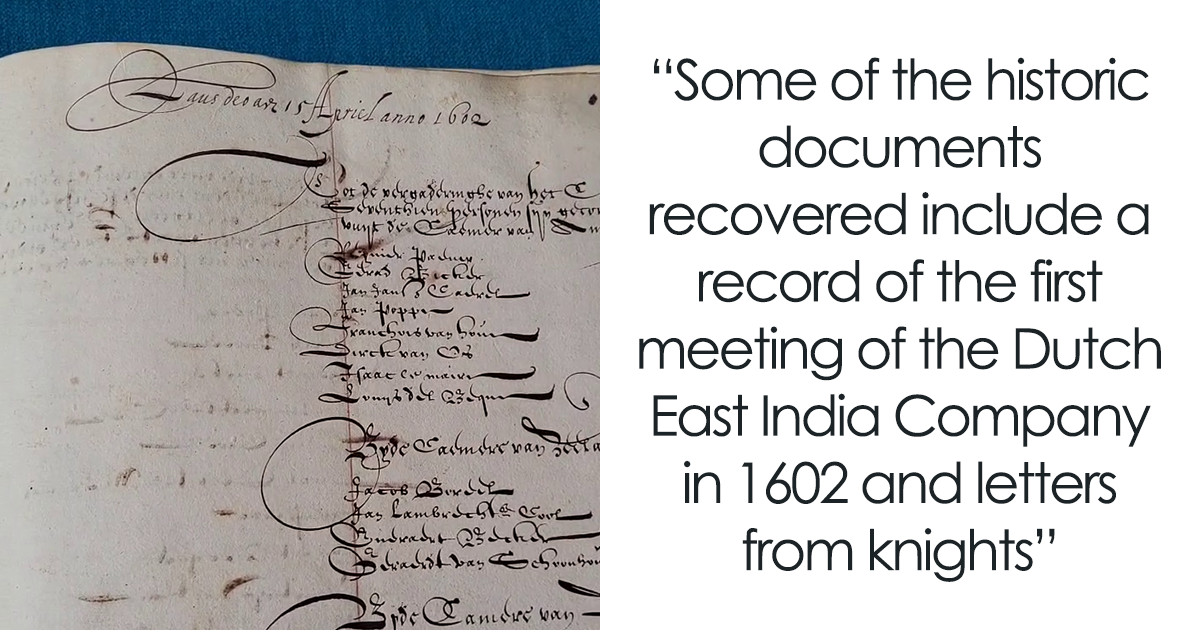 Laus deo adi 15 Aprill anno 1602
Tot de vergaderinghe van het C
Seventhien personen sijn geco
wuijt de Caemer van
Reijnier Pauw
Gerad Bicker
Jan Jansz Caerel
Jan Poppe
Franchois van hove
Dirck van Os
Isaac le maire
Louijs del Beque
Bijde Caemere van zeela
Jacob Boreel
Jan Lambrechts Cool
Everaert Becker
Geraerdt van Schoonhov
Bijde Camere van
“Some of the historic
documents
recovered include a
record of the first
meeting of the Dutch
East India Company
in 1602 and letters
from knights”